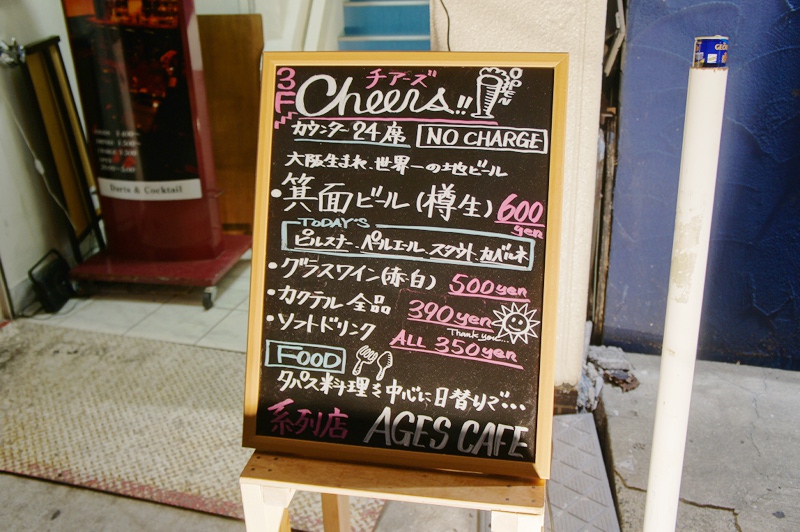 3F
チアーズ
Cheers!!
OPEN
カウンター 24席 NO CHARGE
大阪生まれ、世界一の地ビール
・箕面ビール(樽生) 600 yen
TODAY'S
ピルスナー、ペールエール、スタウト、カベルネ
・グラスワイン(赤・白) 500 yen
・カクテル 全品 390 yen
Thank you..
・ソフトドリンク ALL 350 yen
FOOD
タパス料理を中心に日替りで…
系列店 AGES CAFE
Darts & Cocktail